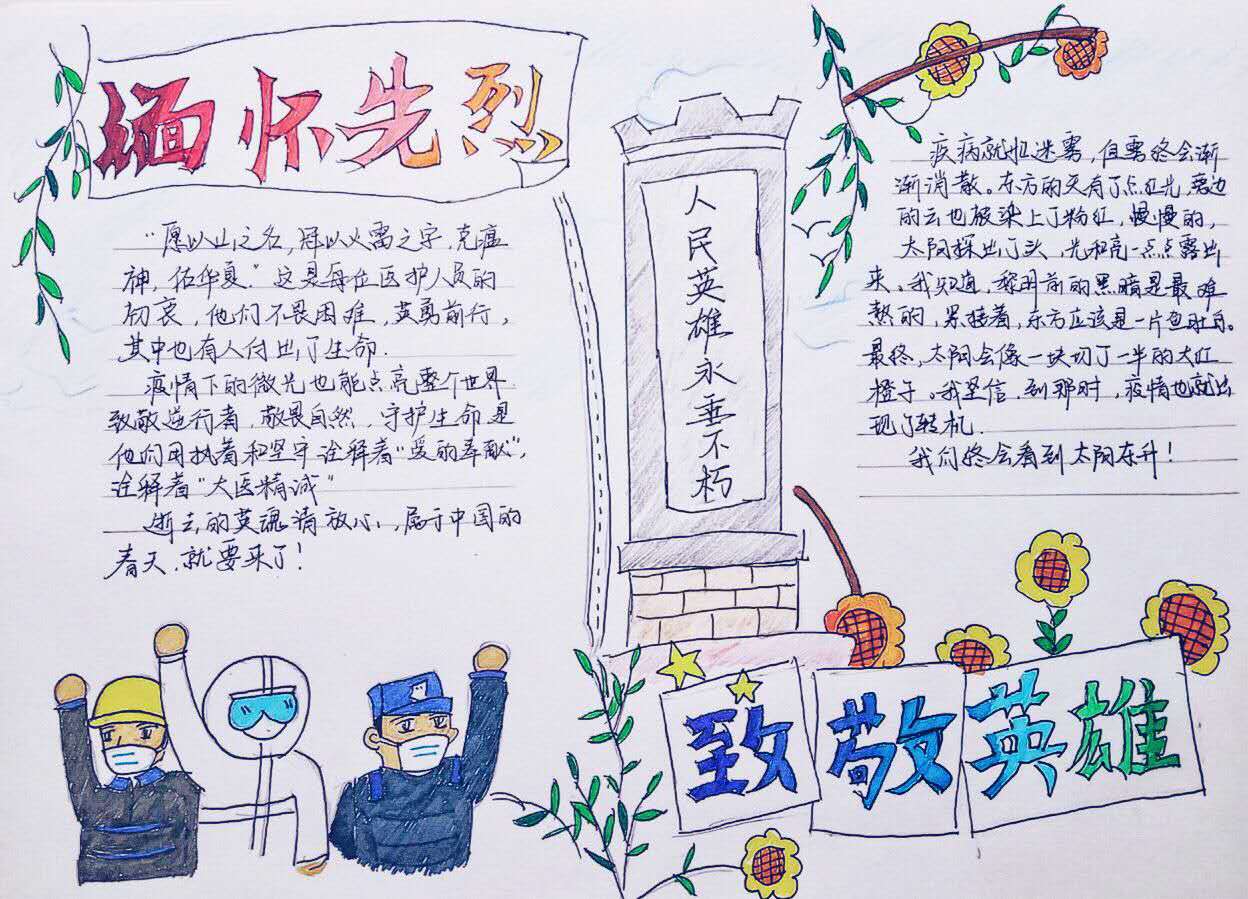 缅怀先烈
"愿以山之名,冠以火需之字,克瘟
神,佑华夏."这是每位医护人员的
初衷,他们不畏困难,英勇前行,
其中也有人付出了生命.
疫情下的微光也能点亮整个世界
致敬逆行者,敬畏自然,守护生命是
他们用执着和坚守诠释着"爱的奉献",
诠释着"大医精诚"
逝去的英魂请放心,属于中国的
春天,就要来了!
人民英雄永垂不朽
疾病就如迷雾,但雾终会渐
渐消散。东方的天有了点红光,旁边
的云也被染上了粉红,慢慢的,
太阳探出了头,光和亮一点点露出
来。我知道,黎明前的黑暗是最难
熬的,紧接着,东方应该是一片鱼肚白。
最终,太阳会像一块切了一半的大红
橙子。我坚信,到那时,疫情也就出
现了转机.
我们终会看到太阳东升!
致敬英雄